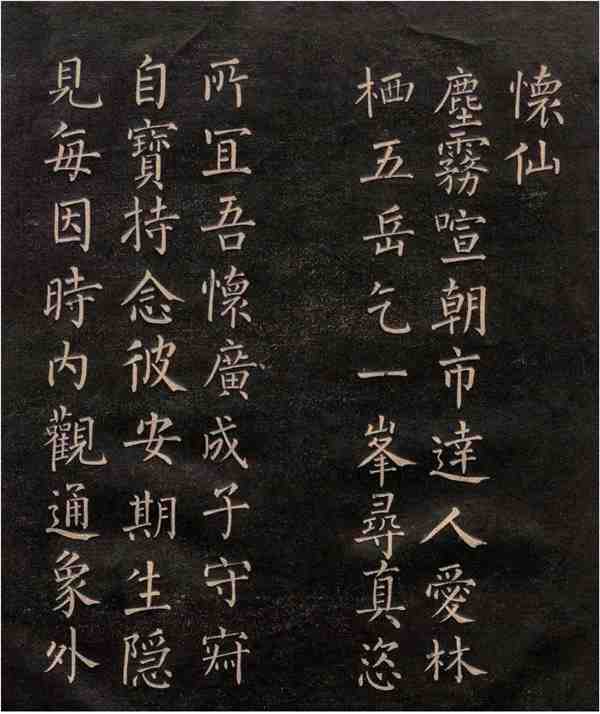 懷仙
塵霧喧朝市達人愛林
栖五岳乞一峯尋真恣
所冝吾懷廣成子守寂
自寶持念彼安期生隐
見每因時内觀通象外